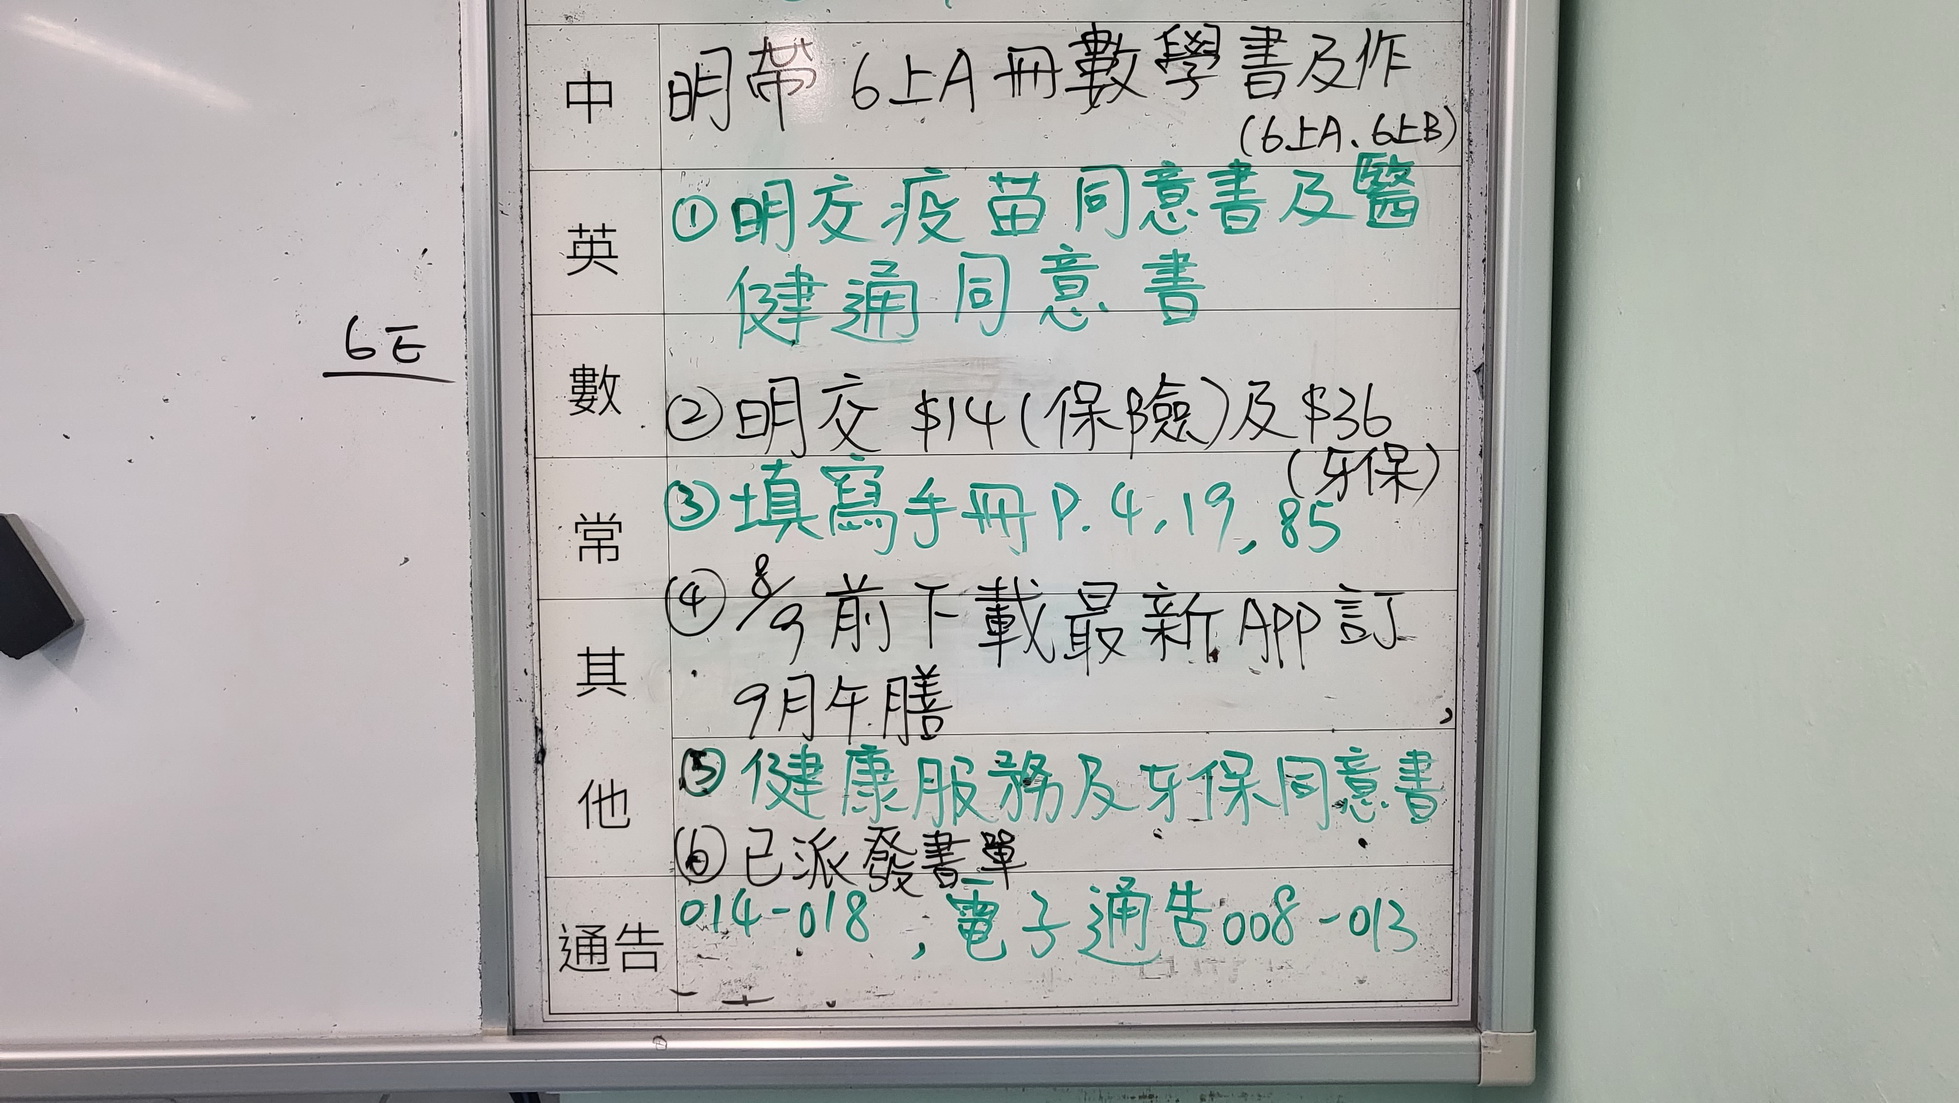 中 明帶 6上A 冊數學書及作
(6上A、6上B)
英 ①明交疫苗同意書及醫
健通同意書
6E
數 ②明交 $14(保險)及$36
(牙保)
常 ③填寫手冊P.4,19,85
④8/9前下載最新APP訂
其 9月午膳
他 ⑤健康服務及牙保同意書
⑥已派發書單
通告 014-018,電子通告008-013